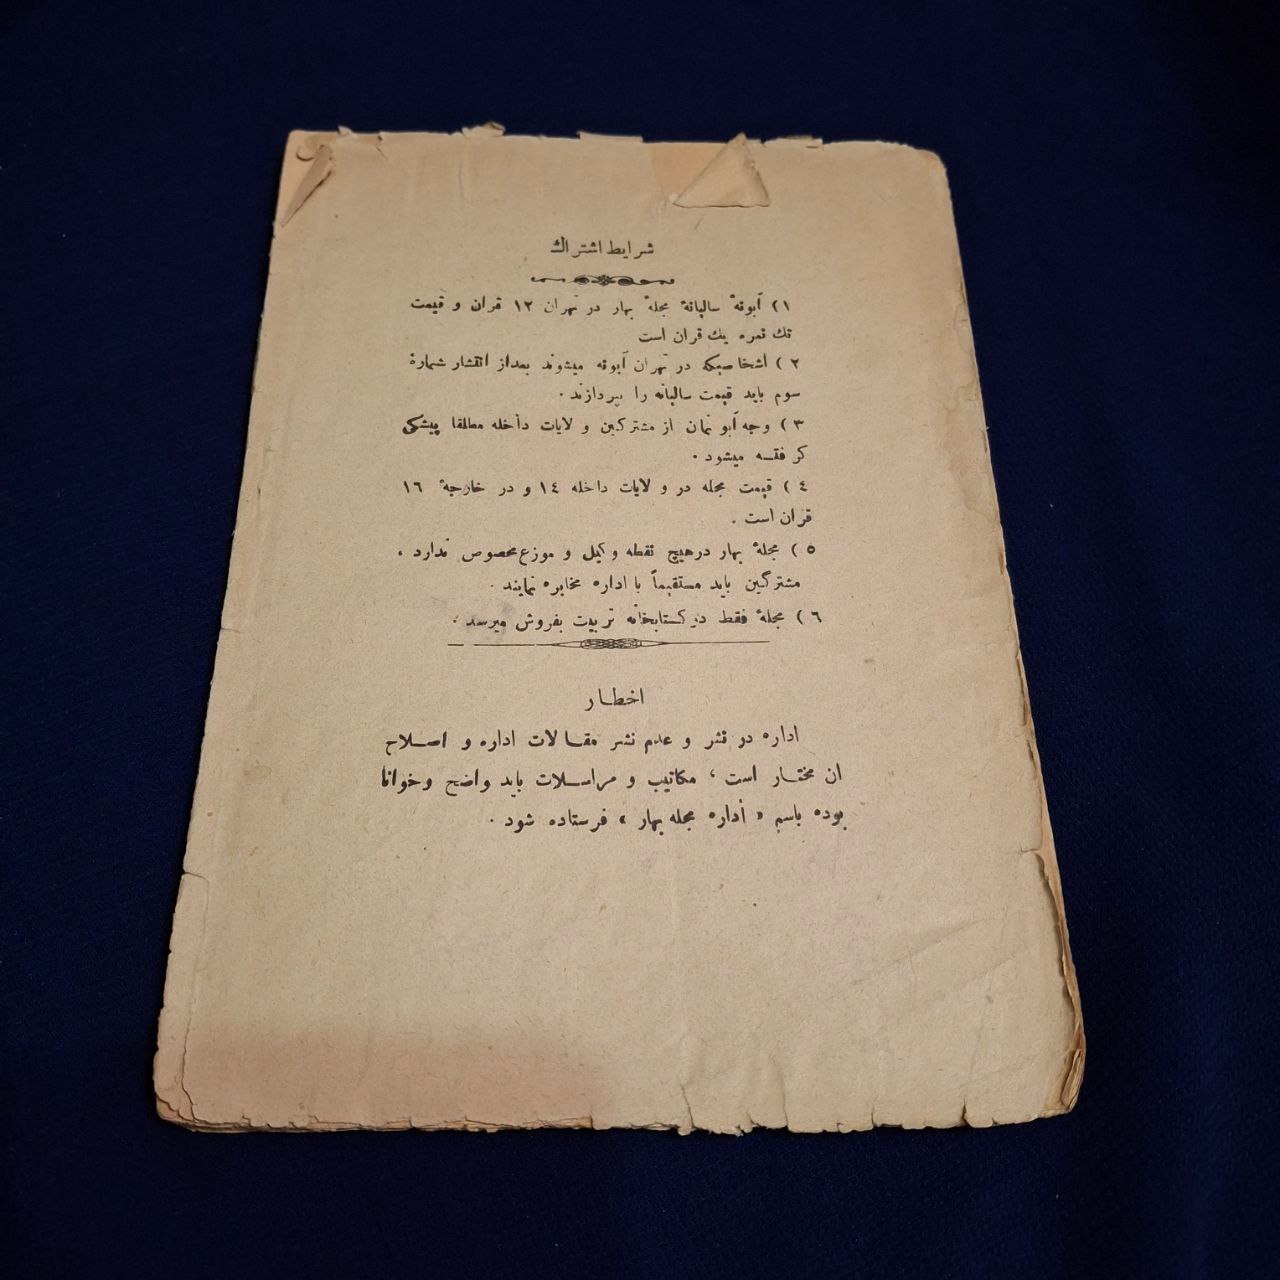 شرایط اشتراك
۱) آبونهٔ سالیانهٔ مجلهٔ بهار در تهران ۱۲ قران و قیمت
تك نمره یك قران است
۲) اشخاصیكه در تهران آبونه میشوند بعد از انتشار شمارهٔ
سوم باید قیمت سالیانه را بپردازند ۰
۳) وجه آبونمان از مشتركین ولایات داخله مطلقا پیشكی
گرفته میشود ۰
٤) قیمت مجله در ولایات داخله ۱٤ و در خارجهٔ ۱٦
قران است .
٥) مجلهٔ بهار در هیچ نقطه وكیل و موزع مخصوص ندارد ،
مشتركین باید مستقیماً با اداره مخابره نمایند ۰
٦) مجلهٔ فقط در كتابخانه تربیت بفروش میرسد ۰
اخطار
اداره در نشر و عدم نشر مقالات اداره و اصلاح
ان مختار است ؛ مكاتیب و مراسلات باید واضح و خوانا
بوده باسم « أداره مجله بهار » فرستاده شود ۰